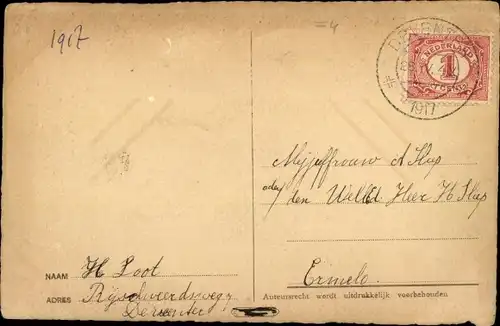 1917
=4
NEDERLAND
1
CENT
1917
Mejuffrouw A Slup
den Weled Heer H Slup
Ermelo
NAAM H Loot
ADRES
Deventer
Auteursrecht wordt uitdrukkelijk voorbehouden